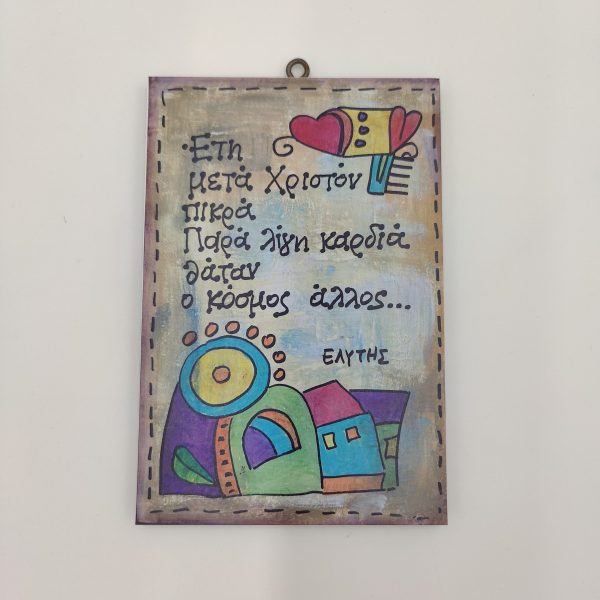 Έτη
μετά Χριστόν
πικρά
Παρά λίγη καρδιά
θάταν
ο κόσμος άλλος...
ΕΛΥΤΗΣ